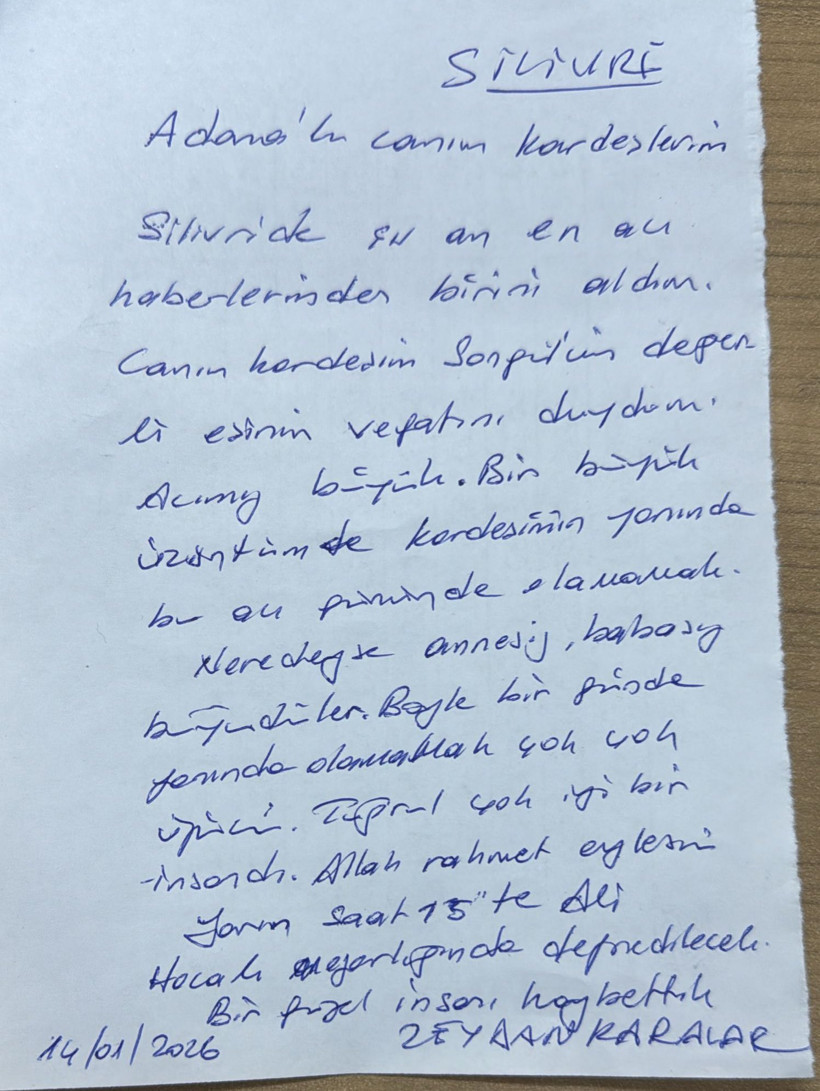 SİLİVRİ
Adana'lı canım kardeşlerim
Silivride şu an en acı
haberlerinden birini aldım.
Canım kardeşim Songül'ün değer
li eşinin vefatını duydum.
Acımız büyük. Bir büyük
üzüntüm de kardeşimin yanında
bu acı gününde olamamak.
Neredeyse annesiz, babasız
büyüdüler. Böyle bir günde
yanında olamamak çok çok
üzücü. Tuğrul çok iyi bir
insandı. Allah rahmet eylesin
Yarın saat 15"te Ali
Hocalı mezarlığında defnedilecek.
Bir güzel insanı kaybettik
14/01/2026 ZEYDAN KARALAR